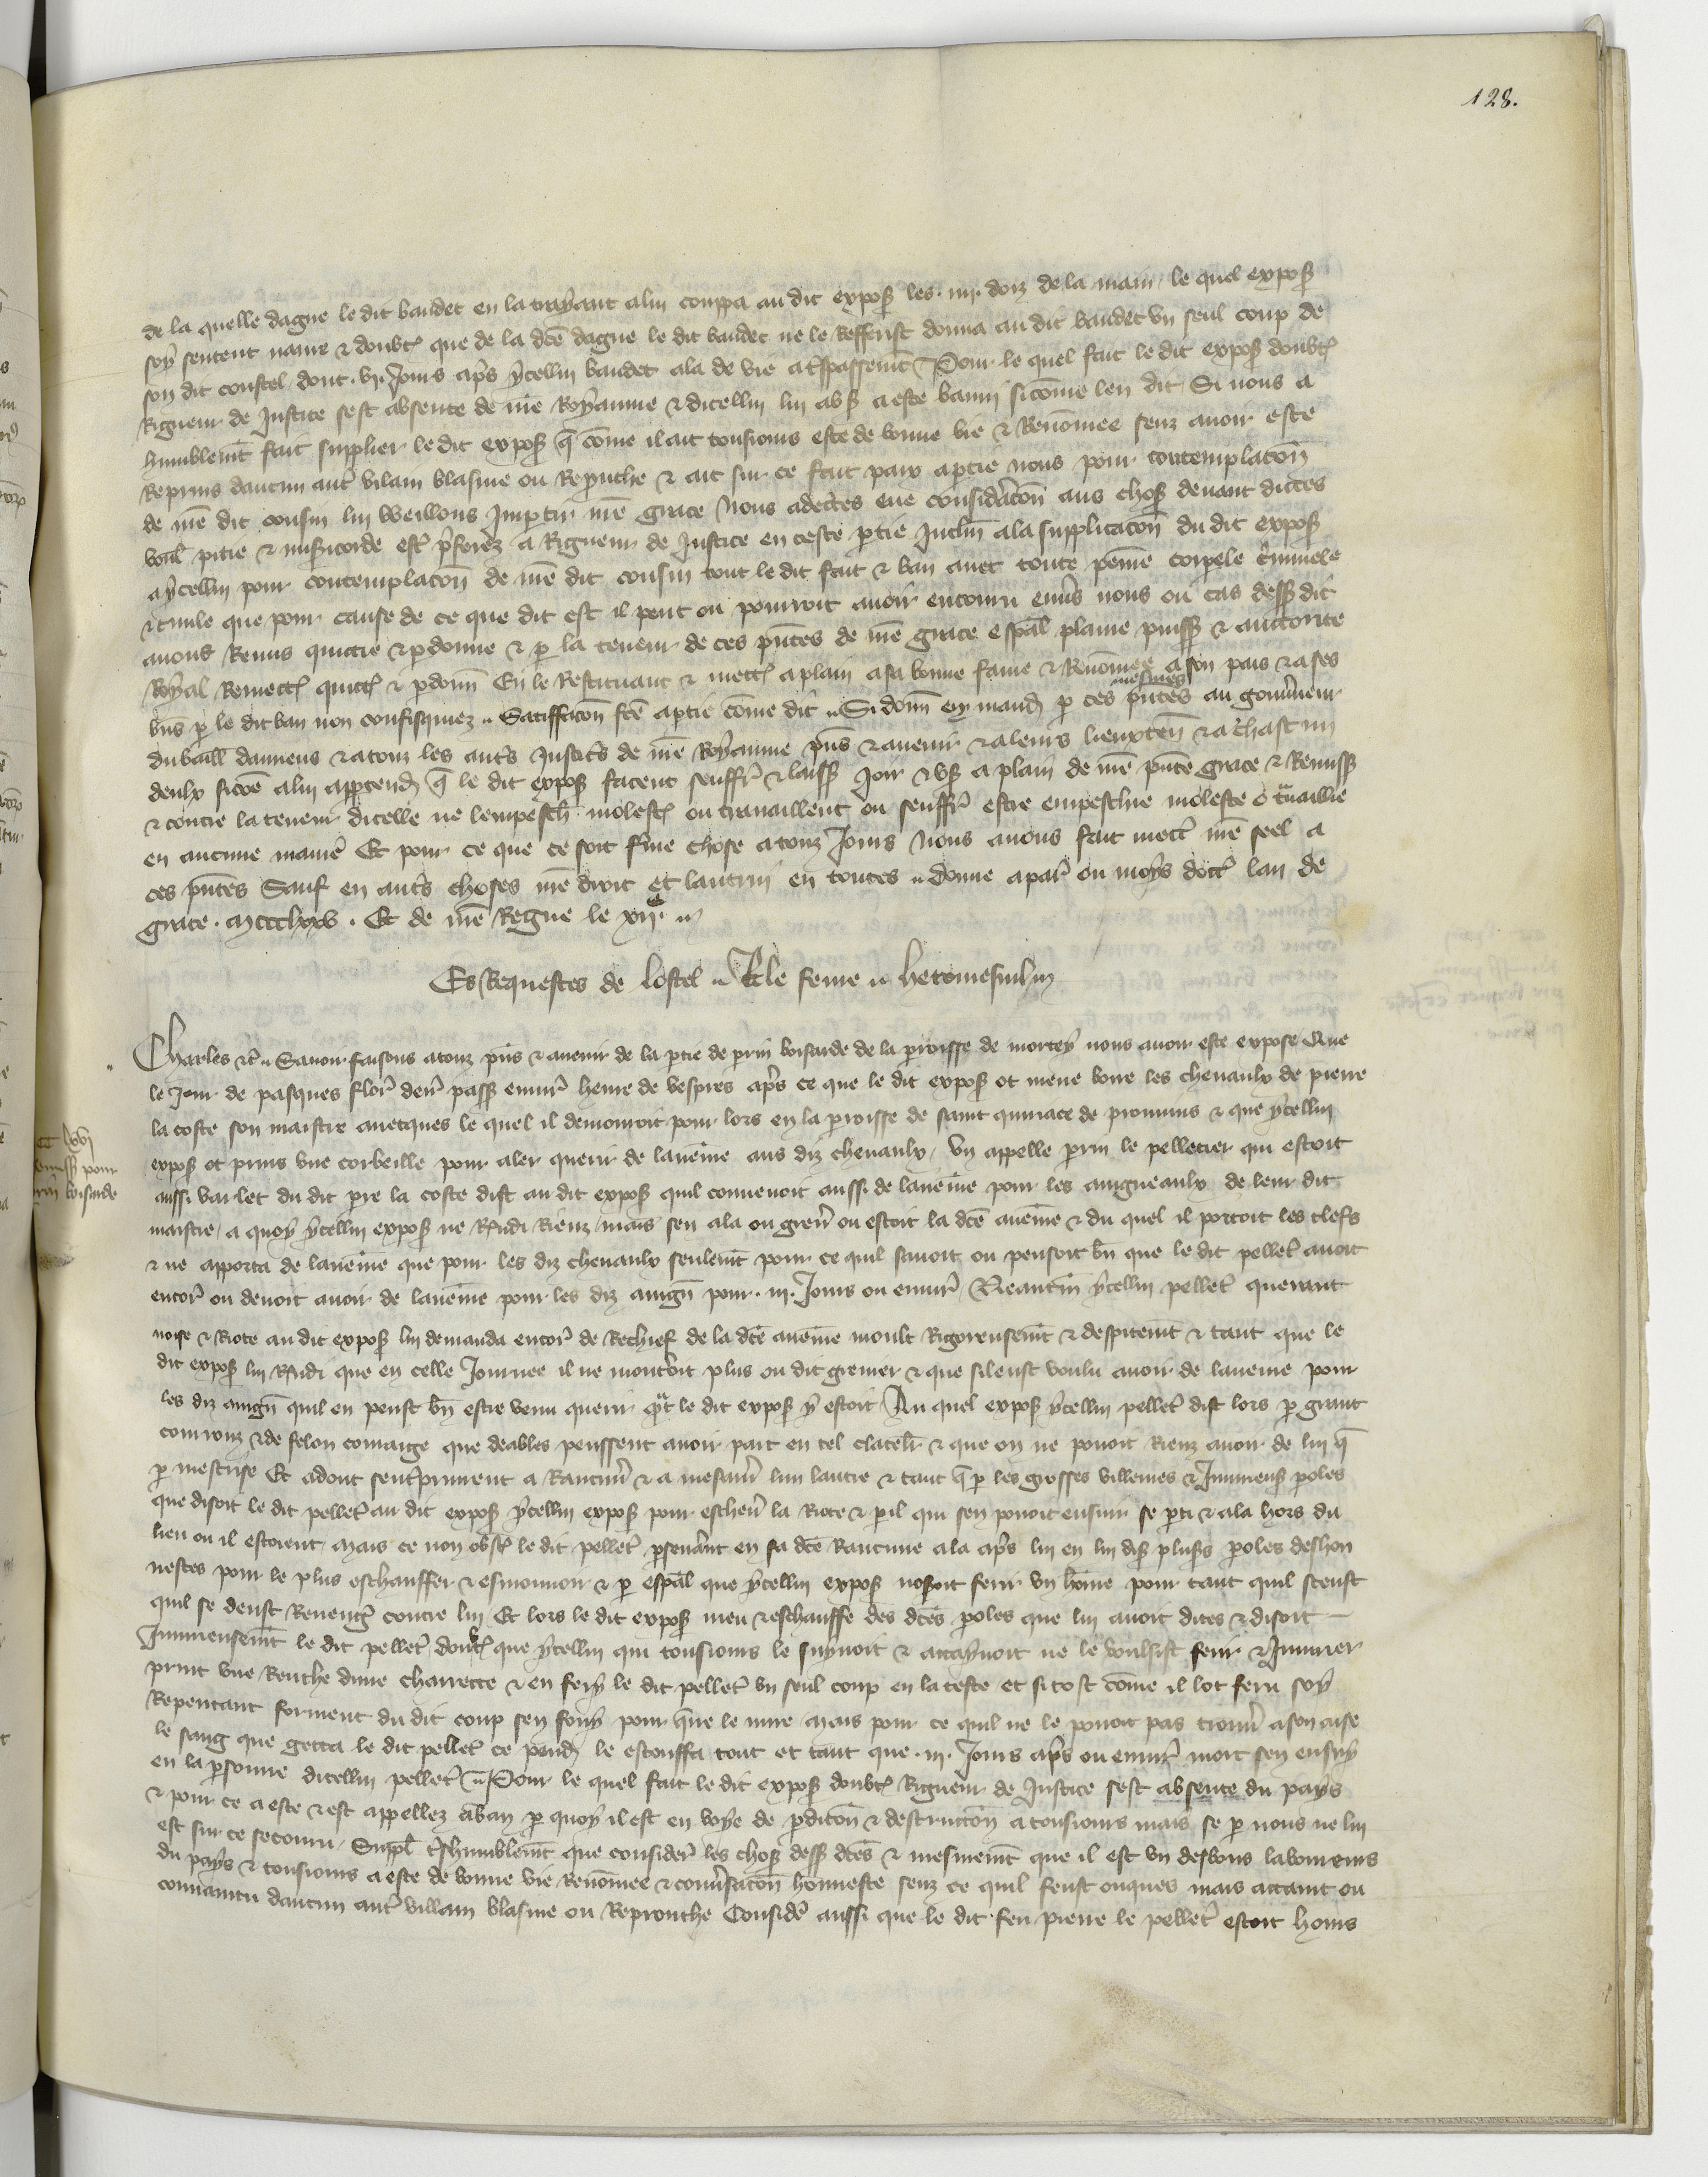 128.
de la quelle dague le dit baudet en la trayant a lui coppa au dit expos les .iiij. doiz de la main le quel expos
soy sentent navre & doubt que de la dce dague le dit baudet ne le refferist donna au dit baudet un seul coup de
son dit coustel dont .vj. Jours aprs ycellui baudet ala de vie a trespassemt Pour le quel fait le dit expos doubt
Rigueur de Justice sest absente de nre Royaume & dicellui lui abs a este banni si come len dit Si nous a
humblemt fait supplier le dit expos q come il ait tousiours este de bonne vie & Renomee senz avoir este
Repruns daucun autr vilain blasme ou Reprouche & ait sur ce fait paix a ptie nous pour contemplacon
de nre dit cousin lui weillons Imptir nre grace Nous adectes eue consideracon aus chos devant dictes
voul pitie & misicorde estr pferez a Rigueur de Justice en ceste ptie Inclin a la supplicacon du dit expos
a ycellui pour contemplacon de nre dit cousin tout le dit fait & ban avec toute peine corpele criminele
& civile que pour cause de ce que dit est il peut ou pourroit avoir encouru envs nous ou cas dess dit
avons Remis quictie & pdonne & p la teneur de ces pntes de nre grace espal plaine puiss & auctorite
Royal Remett quitt & pdonn En le Restituant & mett a plain a sa bonne fame & Renomee a son pais & a ses
mesmes
bns p le dit ban non confisquez .. Satiffacon fce a ptie come dit .. Si donn en mand p ces pntes au gouvneur
du baill damiens & a touz les autrs Justics de nre Royaume pns & avenir & a leurs lieuxten & a chascun
deulx si coe a lui apptend q le dit expos facent seuffr & laiss Joir & us a plain de nre pnte grace & Remiss
& contre la teneur dicelle ne lempesch molest ou travaillent ou seuffr estre empeschie moleste o travaillie
en aucune manie Et pour ce que ce soit ferme chose a touz Jours Nous avons fait mect nre seel a
ces pntes Sauf en autrs choses nre droit et lautrui en toutes .. donne a par ou moys doct lan de
grace . mccclxxv . Et de nre Regne le xije .
Es Requestes de lostel .. .. hetomesnil
Charles etc .. Savoir faisons a touz pns & avenir de la ptie de prin boisarde de la proisse de mortey nous avoir este expose Que
le Jour de pasques flor derr pass envir heure de vespres aprs ce que le dit expos ot mene boire les chevaulx de pierre
la coste son maistre avecques le quel il demouroit pour lors en la proisse de saint quirace de prouvins & que ycellui
expos ot pruns une corbeille pour aler querir de laveine aus diz chevaulx un appelle prin le pelletier qui estoit
aussi varlet du dit pre la coste dist au dit expos quil convenoit aussi de laveine pour les aigneaulx de leur dit
maistre a quoy ycellui expos ne Rndi Rienz mais sen ala ou gren ou estoit la dce aveine & du quel il portoit les clefs
& ne apporta de laveine que pour les diz chevaulx seulemt pour ce quil savoit ou pensoit bn que le dit pellet avoit
encor ou devoit avoir de laveine pour les diz aign pour .iij. Jours ou envir Neantm ycellui pellet querant
noise & Riote au dit expos lui demanda encor de Rechief de la dce aveine moult Rigoreusemt & despitemt & tant que le
dit expos lui Rndi que en celle Journee il ne monteroit plus ou dit grenier & que sil eust voulu avoir de laveine pour
les diz aign quil en peust bn estre venu querir qut le dit expos y estoit Au quel expos ycellui pellet dist lors p grant
courrouz & de felon couraige que deables peussent avoir part en tel & que on ne pouoit Rienz avoir de lui q
p mestrise Et adont sentrprinrent a Rancun & a mesam lun lautre & tant q p les grosses villenies & Iniurieus proles
que disoit le dit pellet au dit expos ycellui expos pour eschev la Riote & pil qui sen pouoit ensuir se pti & ala hors du
lieu ou il estoient Mais ce non obst le dit pellet psevrant en sa dce Rancune ala aprs lui en lui dis pluss proles deshon
nestes pour le plus eschauffer & esmouvoir & p espal que ycellui expos nosoit ferir un home pour tant quil sceust
quil se deust Revengr contre lui Et lors le dit expos meu & eschauffe des dces proles que lui avoit dites & disoit
Iniurieusemt le dit pellet doubt que ycellui qui tousiours le suyvoit & attaynoit ne le voulsist ferir & Iniurier
print une Reuche dune charrette & en fery le dit pellet un seul coup en la teste et si tost come il lot feru soy
Repentant forment du dit coup sen fouy pour que le mire Mais pour ce quil ne le pouoit pas trouv a son aise
le sang que getta le dit pellet ce pend le estouffa tout et tant que .iij. Jours aprs ou envir mort sen ensuy
en la psonne dicellui pellet Pour le quel fait le dit expos doubt Rigueur de Justice sest absente du pays
& pour ce a este & est appellez a ban p quoy il est en voye de pdicon & destruccon a tousiours mais se p nous ne lui
est sur ce secouru Suppl trshumblemt que consider les chos dess dces & mesmemt que il est un des bons laboureurs
du pays & tousiours a este de bonne vie Renomee & convsacon honneste senz ce quil feust onques mais attaint ou
convaincu daucun autr villain blasme ou Reprouche Consider aussi que le dit feu pierre le pellet estoit homs